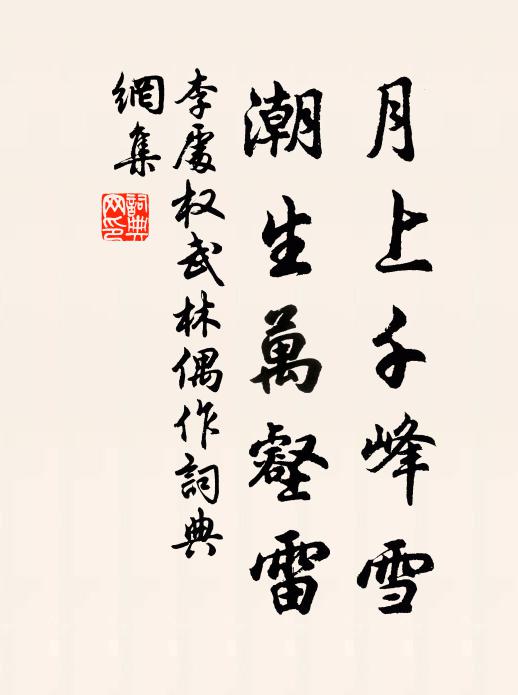 月上千峰雪
潮生萬壑雷
李處权武林偶作詞典
網集
詞典
网印